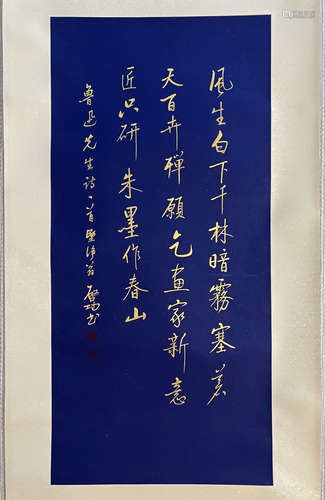 風生白下千林暗霧塞蒼
天百卉殫願乞畫家新意
匠只研朱墨作春山
魯迅先生詩一首堅淨翁
啟功書